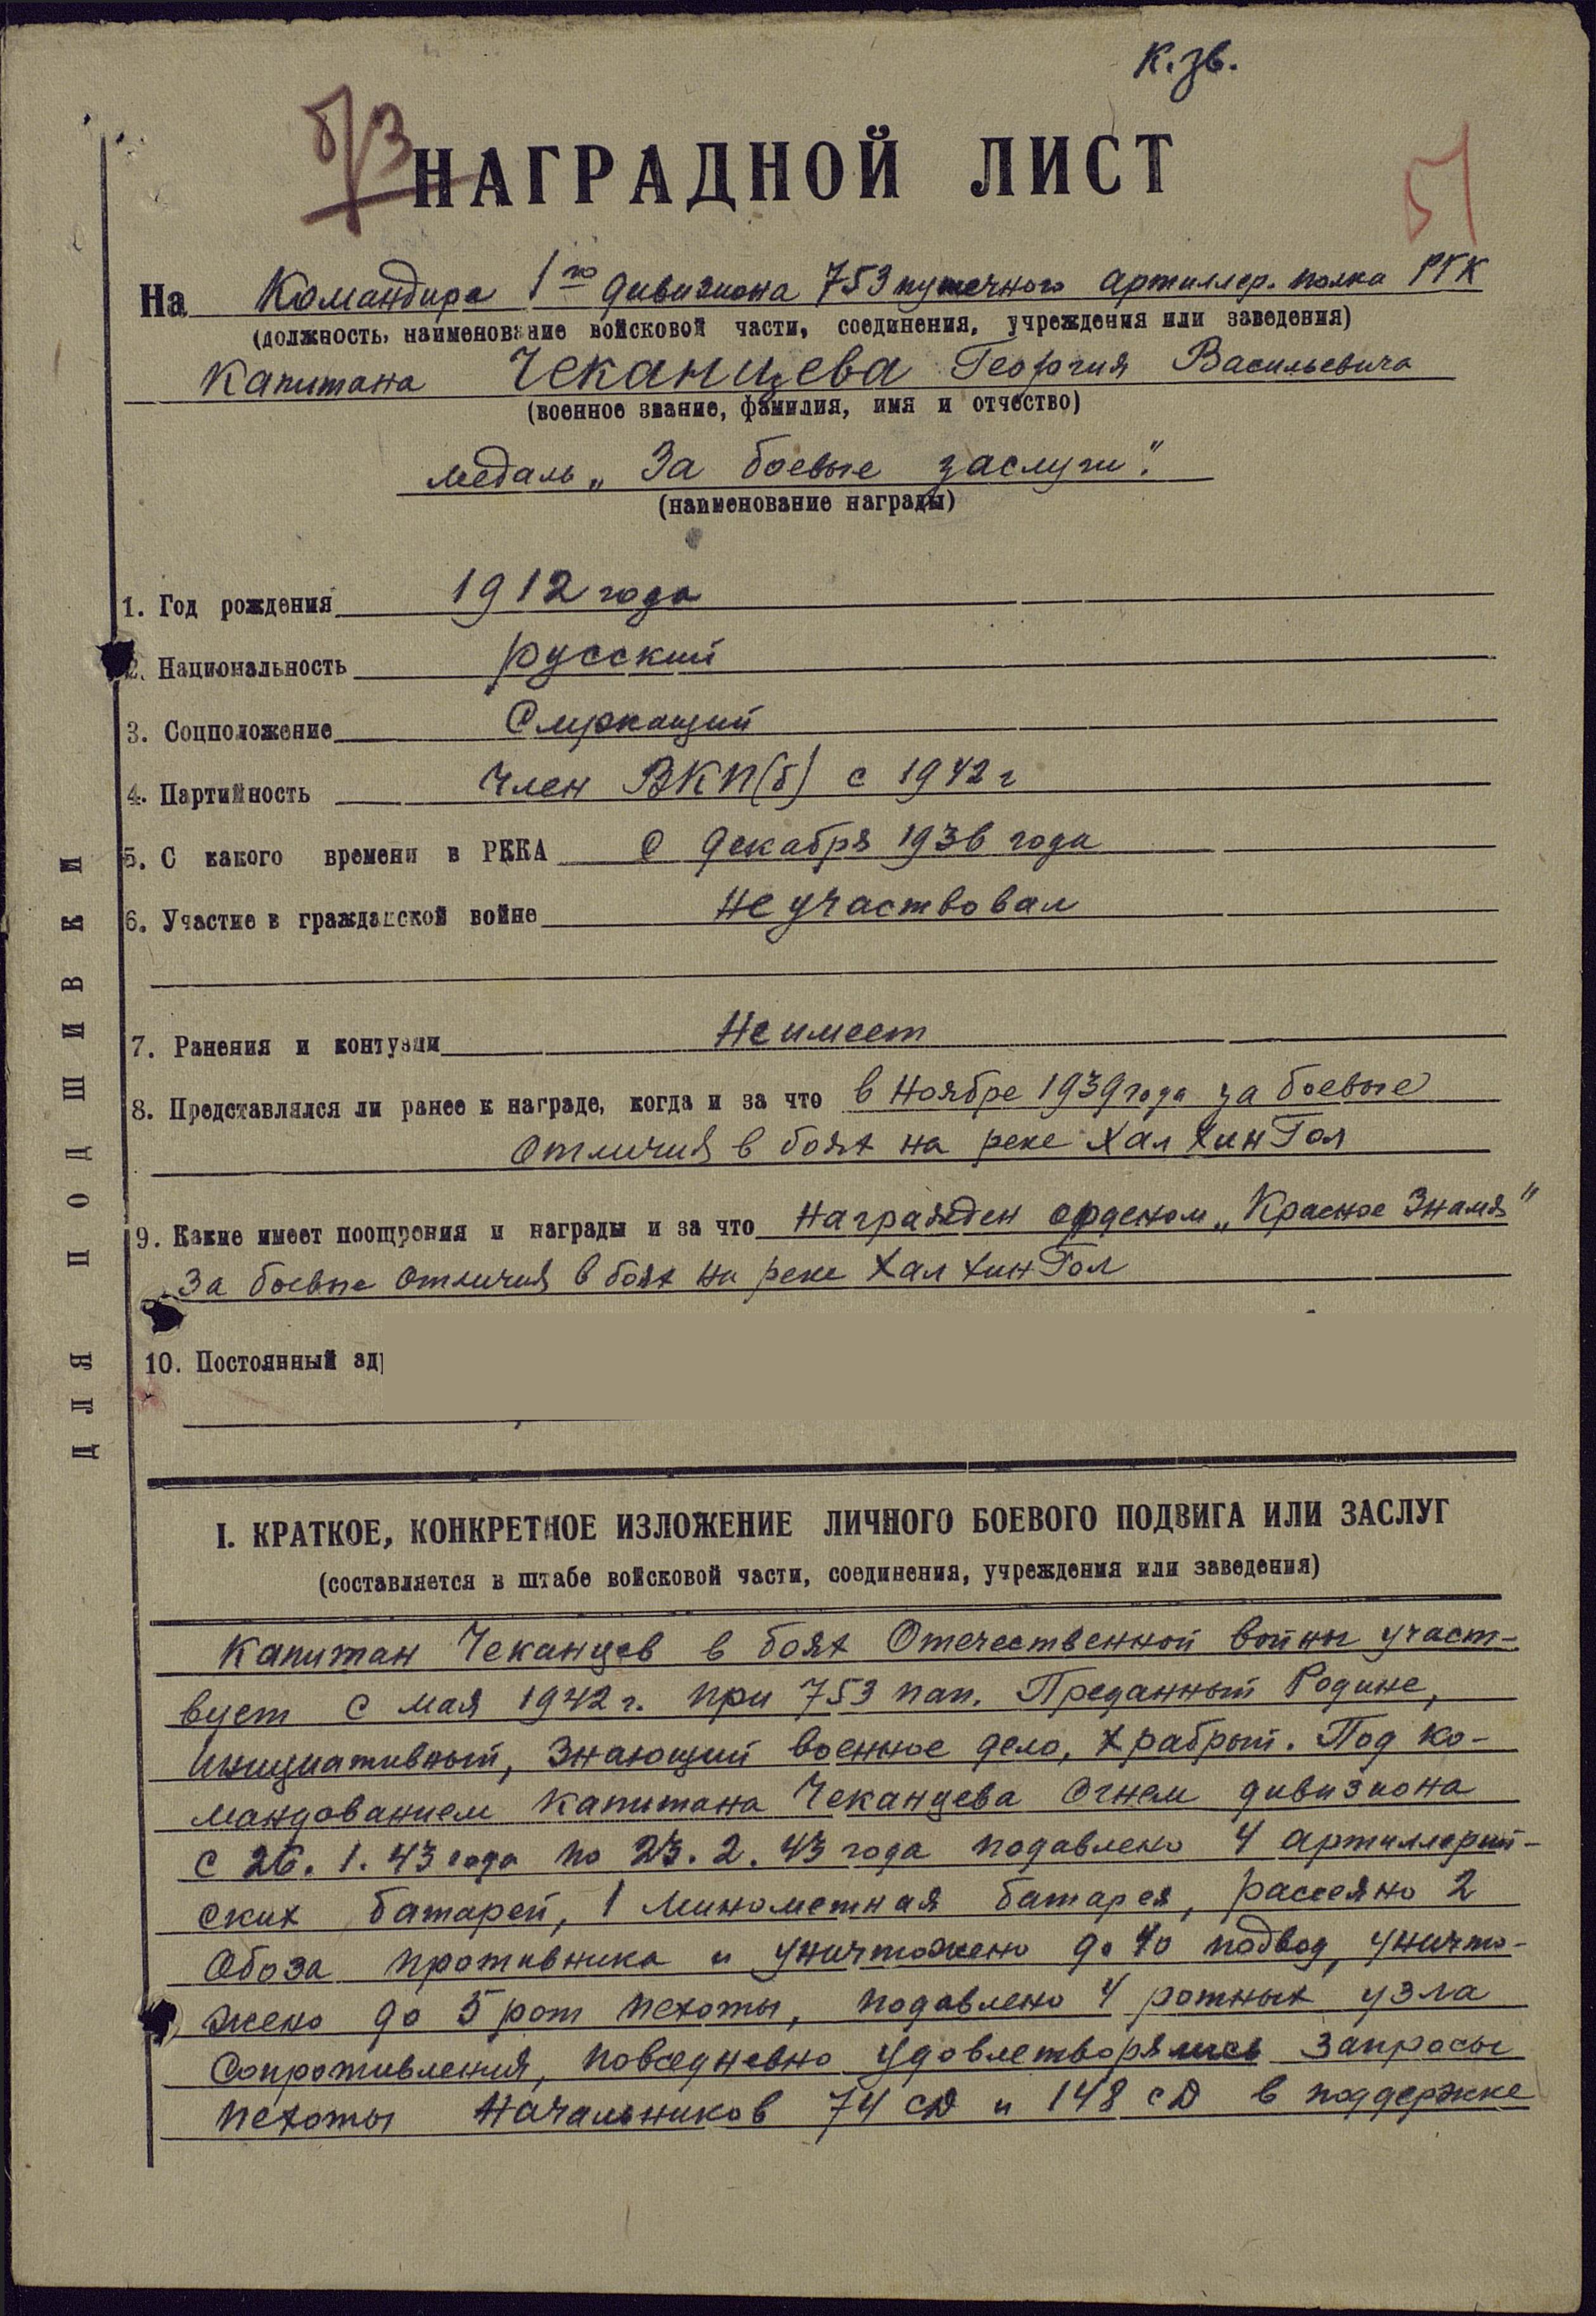 к. зв.
б/з
НАГРАДНОЙ ЛИСТ
51
На Командира 1го дивизиона 753 пушечного артиллер. полка РГК
(должность, наименование войсковой части, соединения, учреждения или заведения)
Капитана Чеканцева Георгия Васильевича
(военное звание, фамилия, имя и отчество)
медаль „За боевые заслуги".
(наименование награды)
1. Год рождения 1912 года
2. Национальность русский
3. Соцположение Служащий
4. Партийность Член ВКП(б) с 1942 г
5. С какого времени в РККА с декабря 1936 года
6. Участие в гражданской войне не участвовал
7. Ранения и контузии не имеет
8. Представлялся ли ранее к награде, когда и за что в ноябре 1939 года за боевые
отличия в боях на реке Халхин Гол
9. Какие имеет поощрения и награды и за что Награжден орденом „Красное Знамя"
За боевые отличия в боях на реке Халхин Гол
10. Постоянный ад
ДЛЯ ПОДШИВКИ
I. КРАТКОЕ, КОНКРЕТНОЕ ИЗЛОЖЕНИЕ ЛИЧНОГО БОЕВОГО ПОДВИГА ИЛИ ЗАСЛУГ
(составляется в штабе войсковой части, соединения, учреждения или заведения)
Капитан Чеканцев в боях Отечественной войны участ-
вует с мая 1942 г. при 753 пап. Преданный Родине,
инициативный, знающий военное дело, храбрый. Под ко-
мандованием капитана Чеканцева огнем дивизиона
с 26. 1. 43 года по 23. 2. 43 года подавлено 4 артиллерий-
ских батарей, 1 минометная батарея, рассеяно 2
обоза противника и уничтожено до 40 подвод, уничто-
жено до 5 рот пехоты, подавлено 4 ротных узла
сопротивления, повседневно удовлетворялись запросы
пехотных начальников 74 сд и 148 сд в поддержке